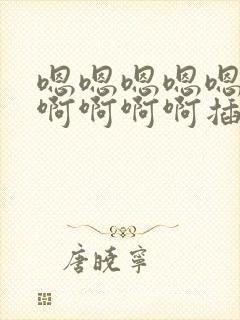 嗯嗯嗯嗯嗯
啊啊啊啊插
唐晓寧